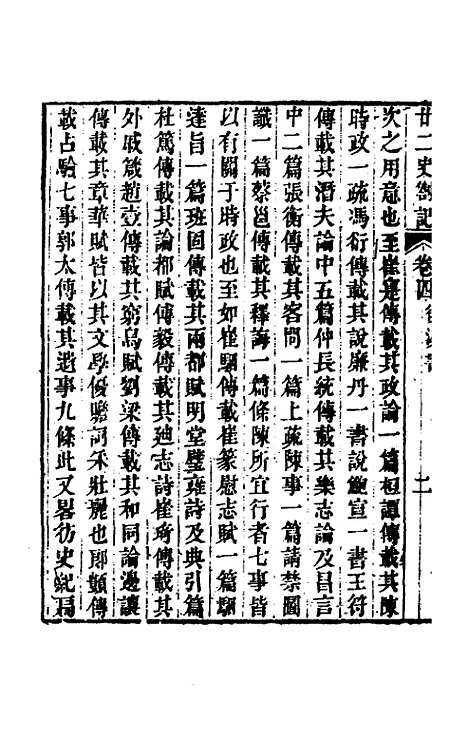 廿二史劄記 卷四 後漢書 二
次之用意也至崔寔傳載其政論一篇桓譚傳載其陳
時政一疏馮衍傳載其說廉丹一書說鮑宣一書王符
傳載其潛夫論中五篇仲長統傳載其樂志論及昌言
中二篇張衡傳載其客問一篇上疏陳事一篇請禁圖
讖一篇蔡邕傳載其釋誨一篇條陳所宜行者七事皆
以有關于時政也至如崔駰傳載崔篆慰志賦一篇駰
達旨一篇班固傳載其兩都賦明堂璧雍詩及典引篇
杜篤傳載其論都賦傅毅傳載其廸志詩崔琦傳載其
外戚箴趙壹傳載其窮鳥賦劉梁傳載其和同論邊讓
傳載其章華賦皆以其文學優贍詞采壯麗也郎顗傳
載占驗七事郭太傳載其遺事九條此又畧仿史記扁